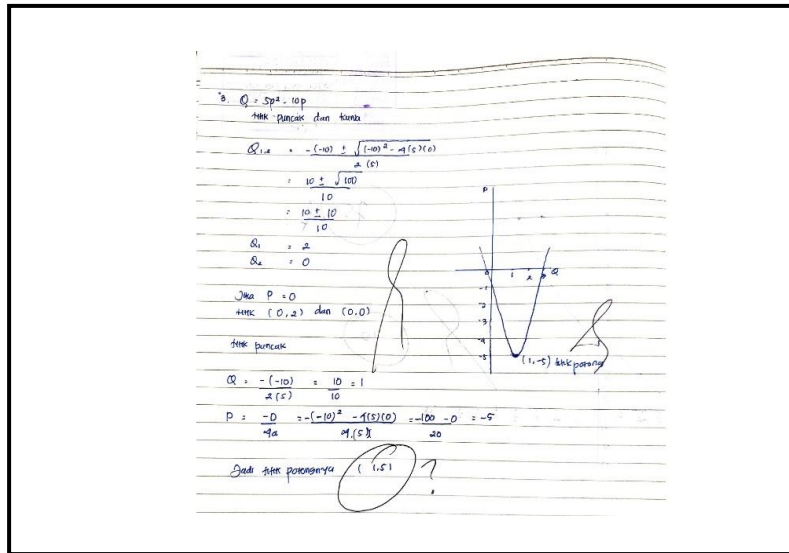 3. Q = 5p² - 10p
titik puncak dan kurva
Q₁,₂ = -(-10) ± √(-10)² - 4(5)(0)
2 (5)
= 10 ± √100
10
= 10 ± 10
10
Q₁ = 2
Q₂ = 0
Jika P = 0
titik (0,2) dan (0,0)
titik puncak
Q = -(-10) = 10 = 1
2(5) 10
P = -D = -(-10)² - 4(5)(0) = -100 - 0 = -5
4a 4.(5) 20
Jadi titik potongnya (1,5) ?
P
0 1 2 3 Q
-1
-2
-3
-4
-5
(1,-5) titik potong